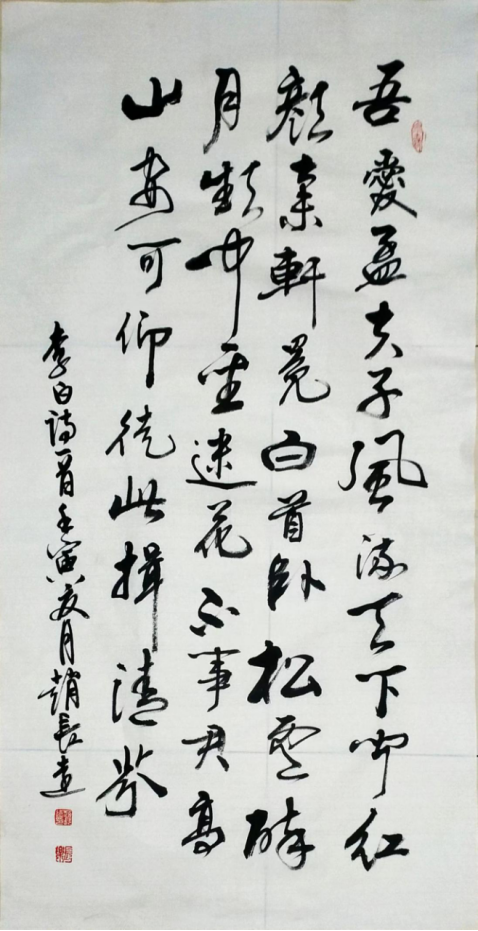 吾愛孟夫子風流天下聞紅
顏棄軒冕白首臥松雲醉
月頻中聖迷花不事君高
山安可仰徒此揖清芬
李白詩一首壬寅夏月趙長